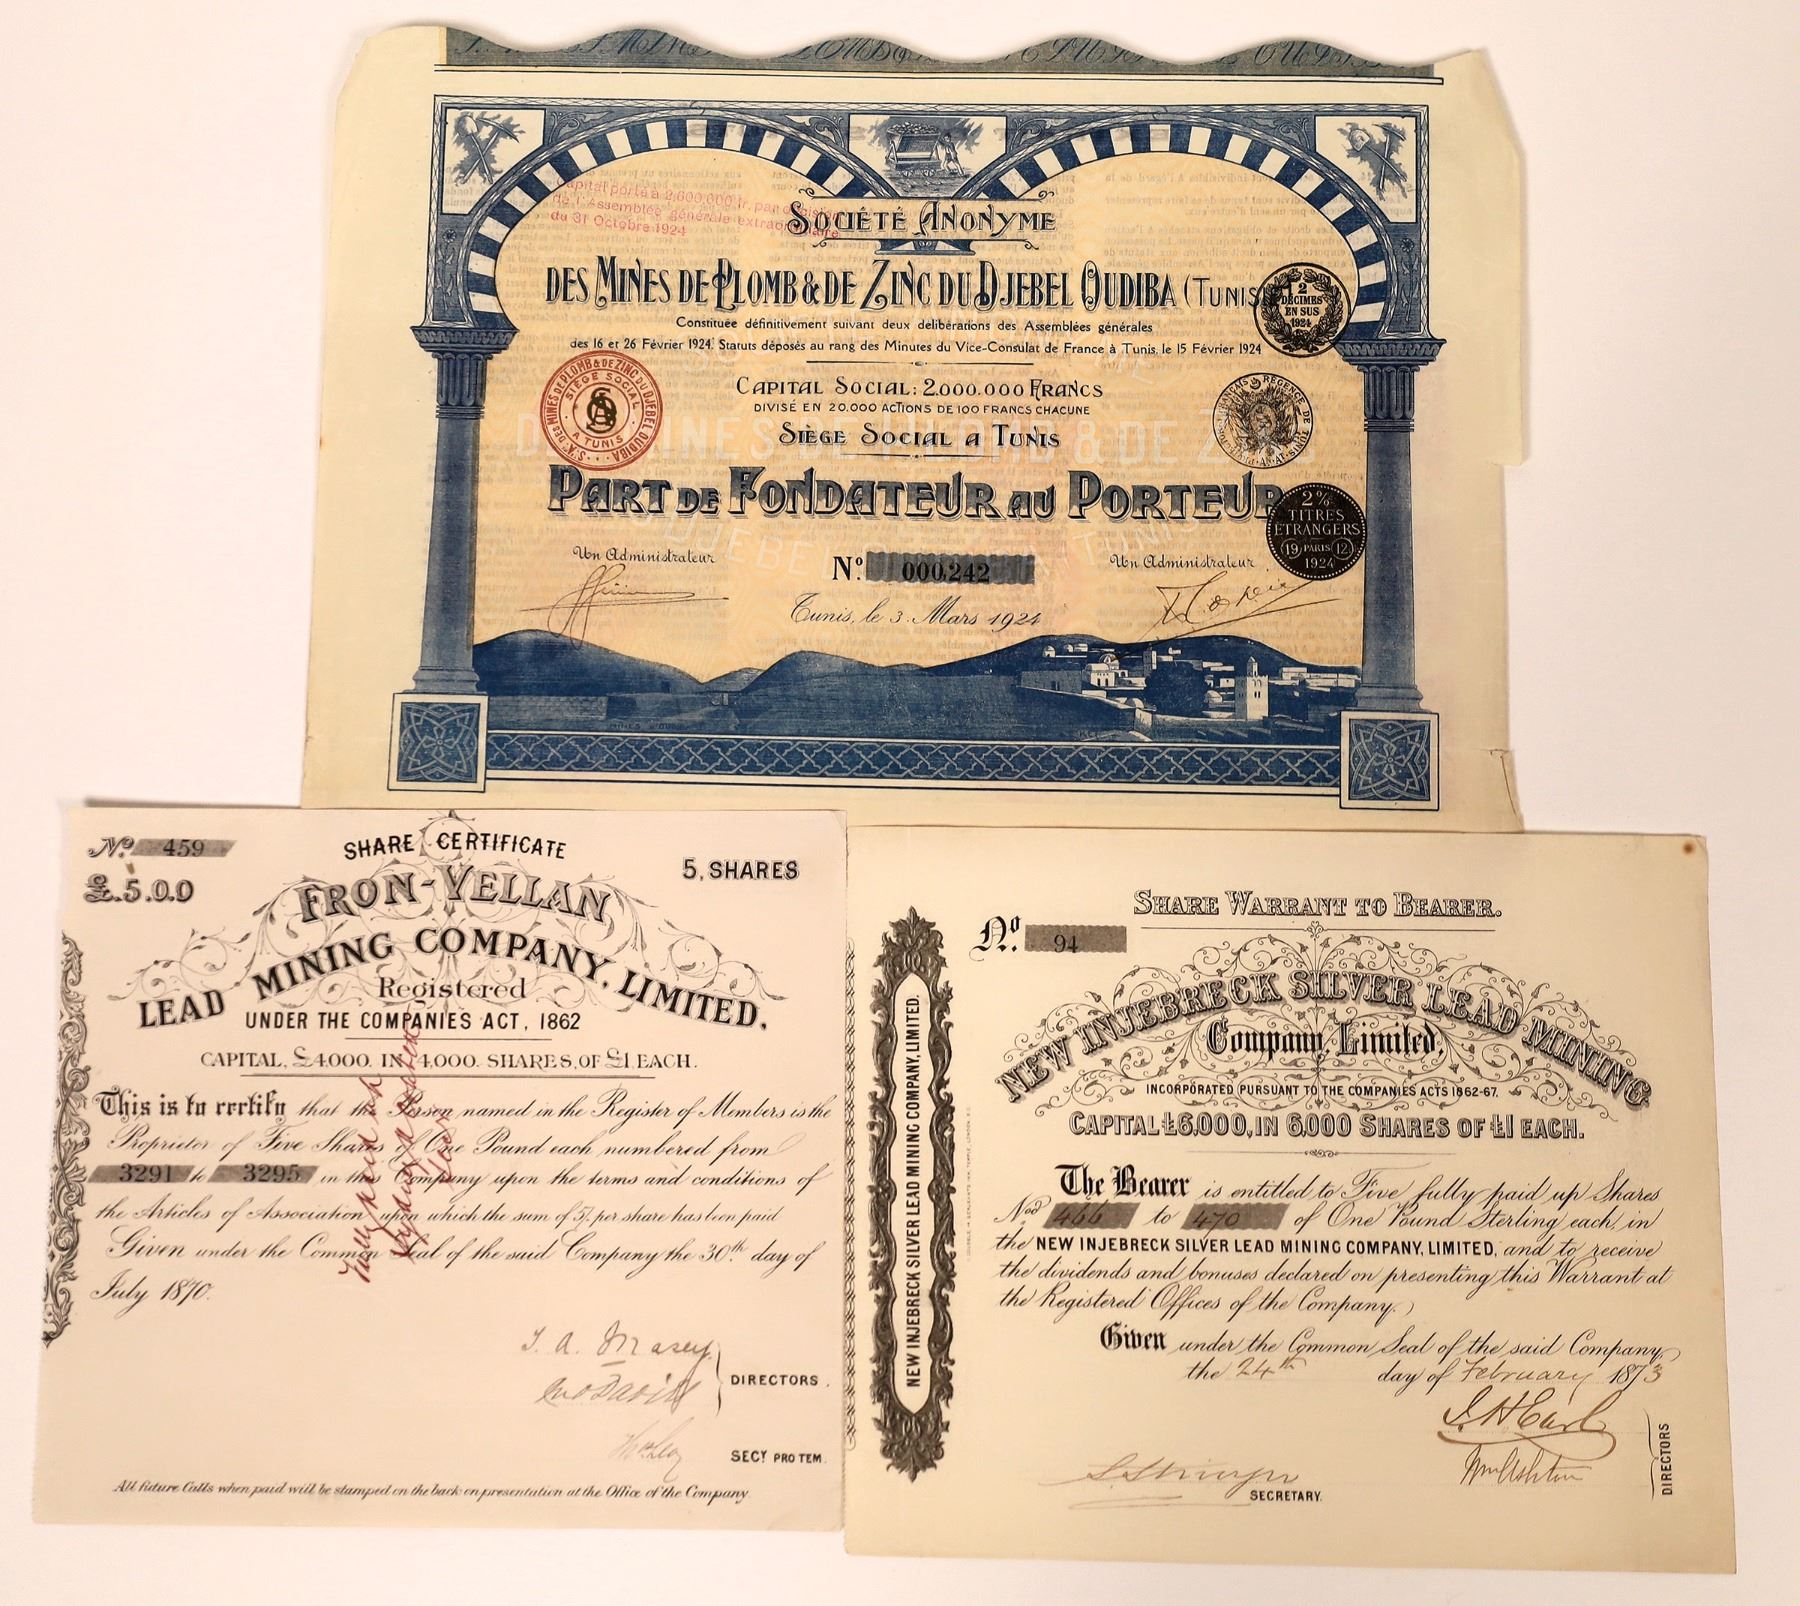 Capital porté à 2,600,000 fr. par
de l'Assemblée générale extraordinaire
du 31 Octobre 1924
SOCIÉTÉ ANONYME
DES MINES DE PLOMB & DE ZINC DU DJEBEL OUDIBA (TUNISIE)
Constituée définitivement suivant deux délibérations des Assemblées générales
des 16 et 26 Février 1924. Statuts déposés au rang des Minutes du Vice-Consulat de France à Tunis, le 15 Février 1924
2 DÉCIMES EN SUS 1924
CAPITAL SOCIAL: 2.000.000 FRANCS
DIVISÉ EN 20.000 ACTIONS DE 100 FRANCS CHACUNE
SIÈGE SOCIAL A TUNIS
STÉ A. DES MINES DE PLOMB & DE ZINC DU DJEBEL OUDIBA
SIÈGE SOCIAL
A TUNIS
RÉGENCE DE TUNIS
PART DE FONDATEUR AU PORTEUR
2%
TITRES
ETRANGERS
19 PARIS 12
1924
Un Administrateur
Un Administrateur
No. 000,242
Tunis, le 3 Mars 1924
No. 459
£.5.0.0
SHARE CERTIFICATE
5, SHARES
FRON-VELLAN
LEAD MINING COMPANY, LIMITED.
Registered
UNDER THE COMPANIES ACT, 1862
CAPITAL, £4000. IN 4,000. SHARES, OF £1 EACH.
This is to certify that the Person named in the Register of Members is the
Proprietor of Five Shares of One Pound each numbered from
3291 to 3295 in this Company upon the terms and conditions of
the Articles of Association upon which the sum of 5/ per share has been paid
Given under the Common Seal of the said Company the 30th day of
July 1870.
Fully paid up
T. A. Masey
Jno Davis
DIRECTORS.
SECY PRO TEM.
All future Calls when paid will be stamped on the back on presentation at the Office of the Company.
SHARE WARRANT TO BEARER.
No. 94
NEW INJEBRECK SILVER LEAD MINING
Company, Limited,
INCORPORATED PURSUANT TO THE COMPANIES ACTS 1862-67.
CAPITAL £6,000, IN 6,000 SHARES OF £1 EACH.
The Bearer is entitled to Five fully paid up Shares
Nos 466 to 470 of One Pound Sterling each, in
the NEW INJEBRECK SILVER LEAD MINING COMPANY, LIMITED, and to receive
the dividends and bonuses declared on presenting this Warrant at
the Registered Offices of the Company.
Given under the Common Seal of the said Company,
the 24th day of February 1873
J. H. Earl
Wm Ashton
DIRECTORS
SECRETARY.
NEW INJEBRECK SILVER LEAD MINING COMPANY, LIMITED.